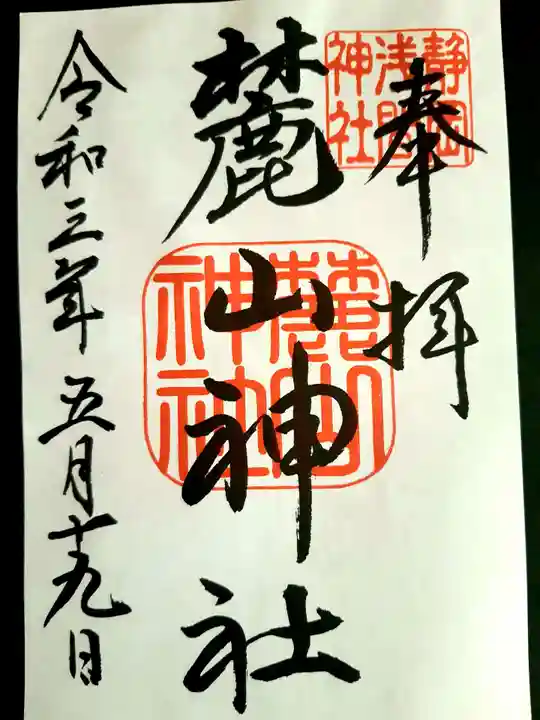 奉拝
静岡
浅間
神社
麓山神社
麓山
神社
令和三年五月十九日